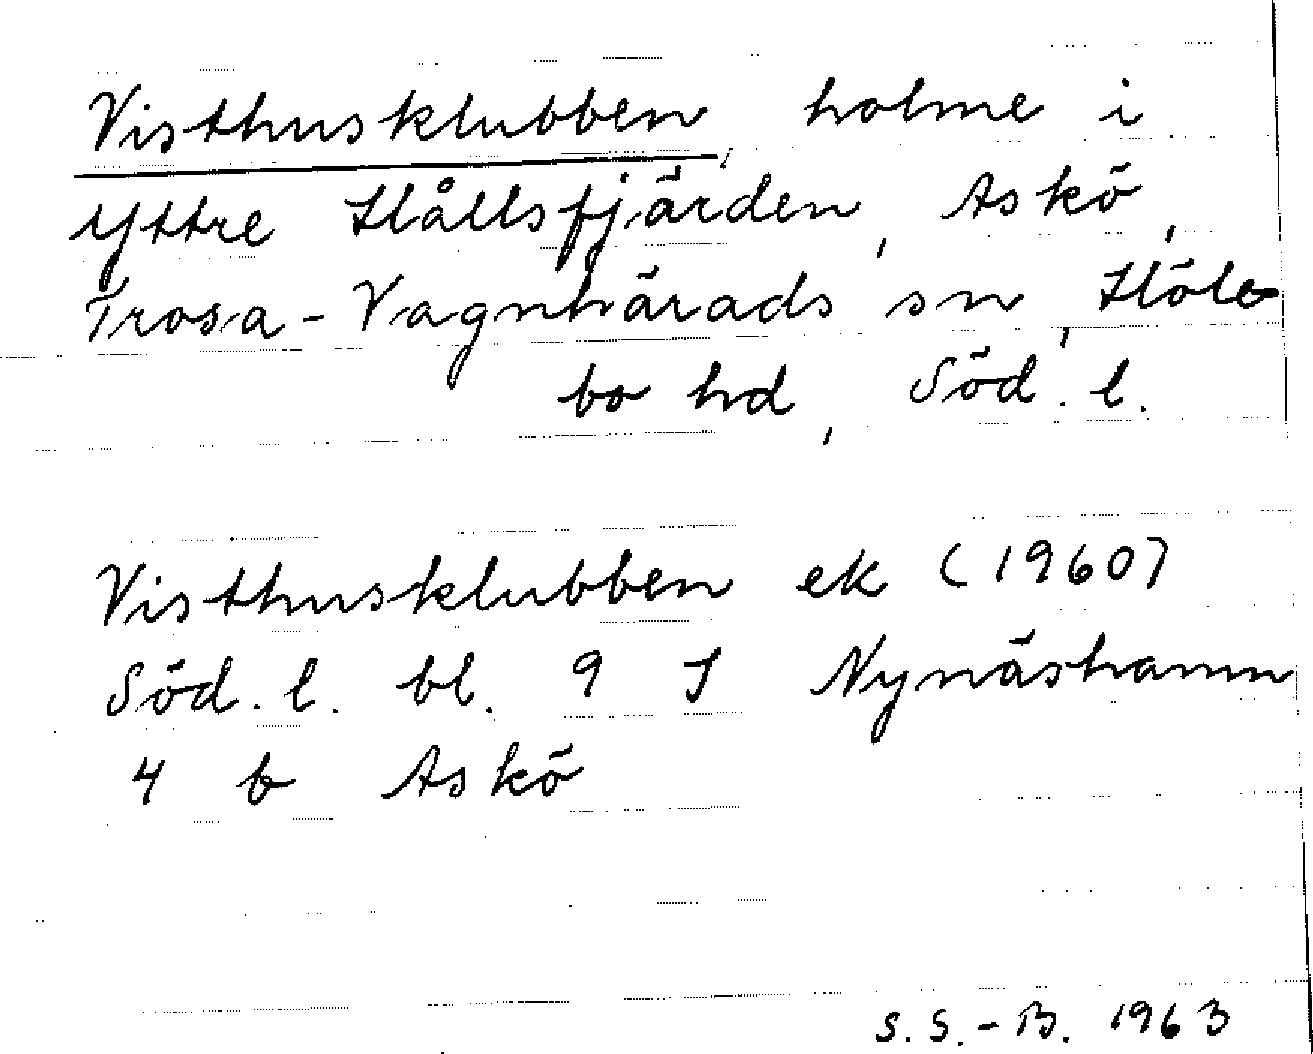 Visthusklubben, holme i
Yttre Hållsfjärden, Askö,
Trosa-Vagnhärads sn, Höle
bo hd, Söd. l.
Visthusklubben ek (1960)
Söd. l. bl. 9 I Nynäshamn
4 b Askö
S. S.-B. 1963